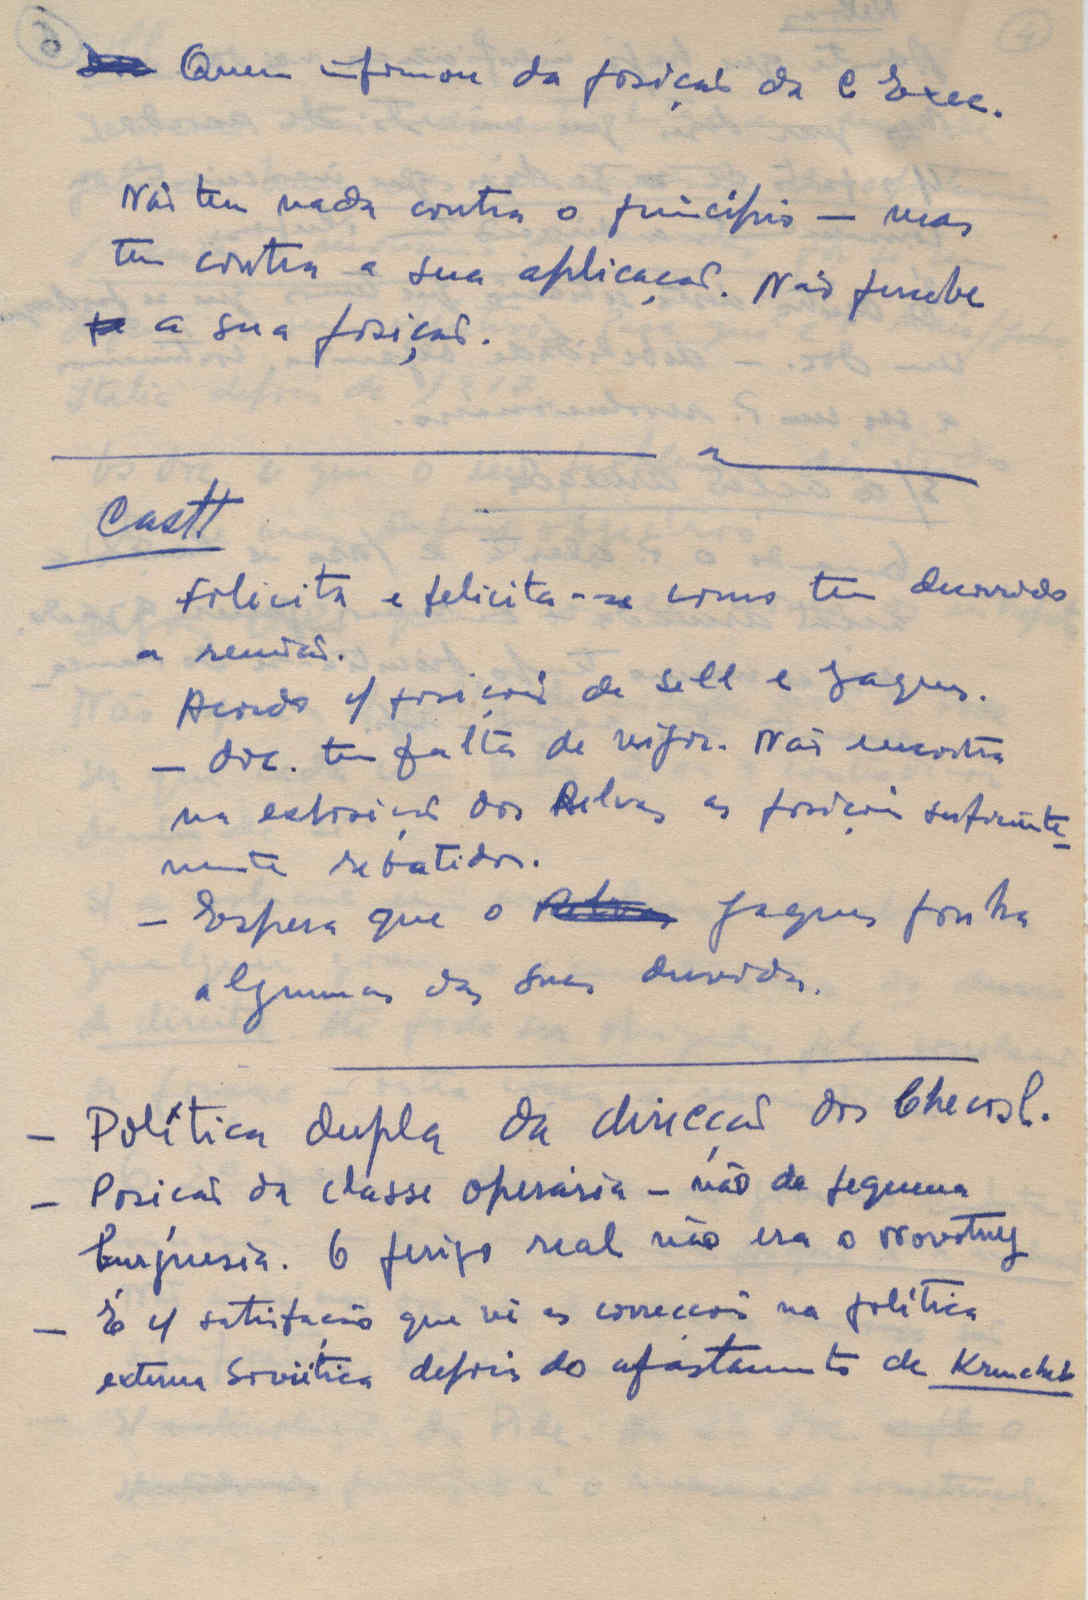 Quem informou da posição da C Exec.
Não tem nada contra o princípio — mas
tem contra a sua aplicação. Não percebe
a sua posição.
Castt
Felicita e felicita-se como tem decorrido
a reunião.
Acordo c/ posições de Sell e Jaques.
— doc. tem falta de vigor. Não encontra
na exposição dos Relvas as posições suficiente-
mente rebatidas.
— Espera que o Jaques ponha
algumas das suas duvidas.
— Política dupla da direcção dos Checosl.
— Posicão da classe operária — não da pequena
burguesia. O perigo real não era o Novotny
— É c/ satisfação que vê as correccões na política
externa Soviética depois do afastamento de Kruchet